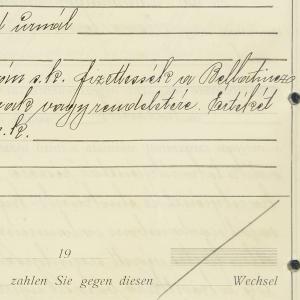 úrnál
s.k. fizettessék a
vagy rendeletére. Értékét
s.k.
19
zahlen Sie gegen diesen Wechsel